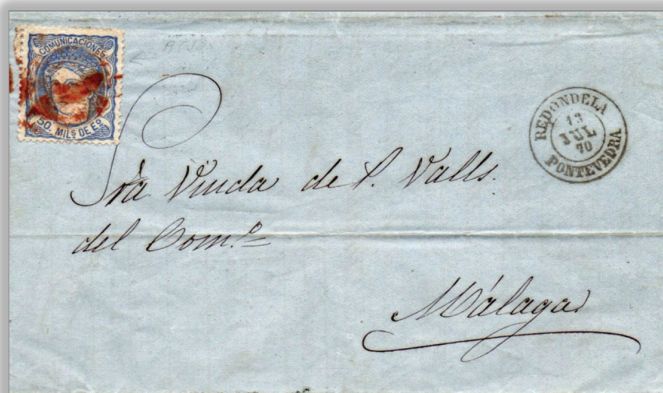 COMUNICACIONES
50. MILS DE ES
REDONDELA
13
JUL
70
PONTEVEDRA
Sra Viuda de P. Valls.
del Com.º
Málaga